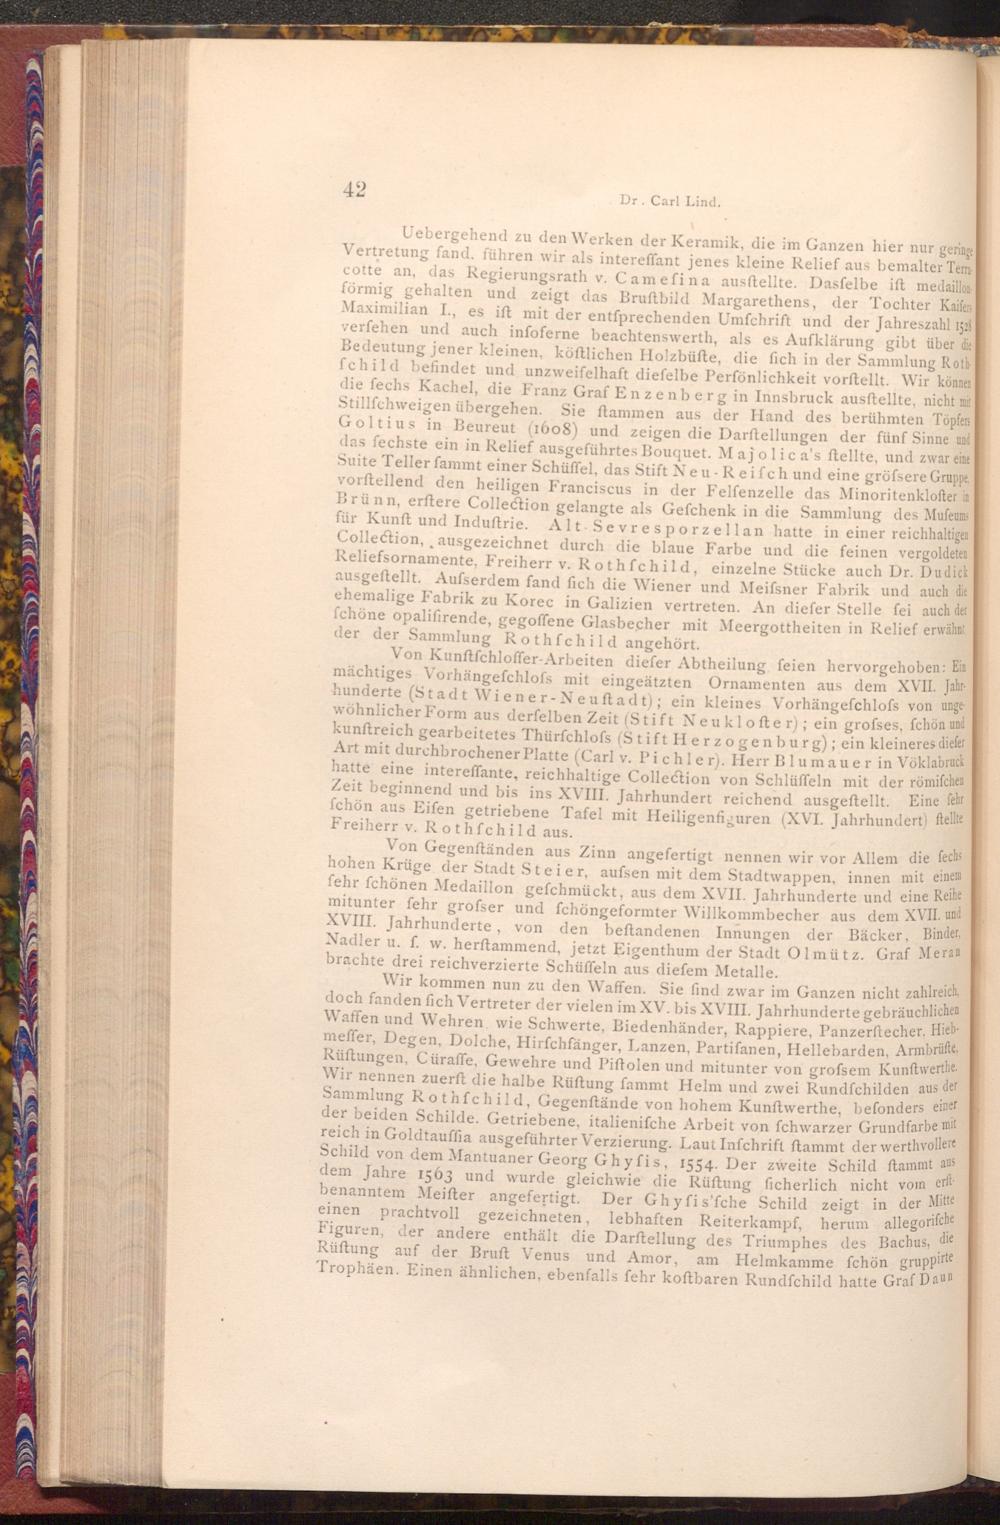 42
Dr. Carl Lind.
Uebergehend zu den Werken der Keramik, die im Ganzen hier nur geringe
Vertretung fand, führen wir als intereſſant jenes kleine Relief aus bemalter Terra-
cotte an, das Regierungsrath v. Cameſina ausſtellte. Dasſelbe iſt medaillon-
förmig gehalten und zeigt das Bruſtbild Margarethens, der Tochter Kaiſers
Maximilian I., es iſt mit der entſprechenden Umſchrift und der Jahreszahl 1528
verſehen und auch infoferne beachtenswerth, als es Aufklärung gibt über die
Bedeutung jener kleinen, köſtlichen Holzbüſte, die ſich in der Sammlung Roth-
ſchild befindet und unzweifelhaft dieſelbe Perſönlichkeit vorſtellt. Wir können
die ſechs Kachel, die Franz Graf Enzenberg in Innsbruck ausſtellte, nicht mit
Stillſchweigen übergehen. Sie ſtammen aus der Hand des berühmten Töpfers
Goltius in Beureut (1608) und zeigen die Darſtellungen der fünf Sinne und
das ſechste ein in Relief ausgeführtes Bouquet. Majolica's ſtellte, und zwar eine
Suite Teller ſammt einer Schüſſel, das Stift Neu-Reiſch und eine gröſsere Gruppe,
vorſtellend den heiligen Franciscus in der Felſenzelle das Minoritenkloſter in
Brünn, erſtere Collection gelangte als Geſchenk in die Sammlung des Muſeums
für Kunſt und Induſtrie. Alt-Sevresporzellan hatte in einer reichhaltigen
Collection, ausgezeichnet durch die blaue Farbe und die feinen vergoldeten
Reliefsornamente, Freiherr v. Rothſchild, einzelne Stücke auch Dr. Dudick
ausgeſtellt. Auſserdem fand ſich die Wiener und Meiſsner Fabrik und auch die
ehemalige Fabrik zu Korec in Galizien vertreten. An dieſer Stelle ſei auch der
ſchöne opaliſirende, gegoſſene Glasbecher mit Meergottheiten in Relief erwähnt
der der Sammlung Rothſchild angehört.
Von Kunſtſchloſſer-Arbeiten dieſer Abtheilung ſeien hervorgehoben: Ein
mächtiges Vorhängeſchloſs mit eingeätzten Ornamenten aus dem XVII. Jahr-
hunderte (Stadt Wiener-Neuſtadt); ein kleines Vorhängeſchloſs von unge-
wöhnlicher Form aus derſelben Zeit (Stift Neukloſter); ein groſses, ſchön und
kunſtreich gearbeitetes Thürſchloſs (Stift Herzogenburg); ein kleineres dieſer
Art mit durchbrochener Platte (Carl v. Pichler). Herr Blumauer in Vöklabruck
hatte eine intereſſante, reichhaltige Collection von Schlüſſeln mit der römiſchen
Zeit beginnend und bis ins XVIII. Jahrhundert reichend ausgeſtellt. Eine ſehr
ſchön aus Eiſen getriebene Tafel mit Heiligenfiguren (XVI. Jahrhundert) ſtellte
Freiherr v. Rothſchild aus.
Von Gegenſtänden aus Zinn angefertigt nennen wir vor Allem die ſechs
hohen Krüge der Stadt Steier, auſsen mit dem Stadtwappen, innen mit einem
ſehr ſchönen Medaillon geſchmückt, aus dem XVII. Jahrhunderte und eine Reihe
mitunter ſehr groſser und ſchöngeformter Willkommbecher aus dem XVII. und
XVIII. Jahrhunderte, von den beſtandenen Innungen der Bäcker, Binder,
Nadler u. ſ. w. herſtammend, jetzt Eigenthum der Stadt Olmütz. Graf Meran
brachte drei reichverzierte Schüſſeln aus dieſem Metalle.
Wir kommen nun zu den Waffen. Sie ſind zwar im Ganzen nicht zahlreich,
doch fanden ſich Vertreter der vielen im XV. bis XVIII. Jahrhunderte gebräuchlichen
Waffen und Wehren wie Schwerte, Biedenhänder, Rappiere, Panzerſtecher, Hieb-
meſſer, Degen, Dolche, Hirſchfänger, Lanzen, Partiſanen, Hellebarden, Armbrüſte,
Rüſtungen, Cüraſſe, Gewehre und Piſtolen und mitunter von groſsem Kunſtwerthe.
Wir nennen zuerſt die halbe Rüſtung ſammt Helm und zwei Rundſchilden aus der
Sammlung Rothſchild, Gegenſtände von hohem Kunſtwerthe, beſonders einer
der beiden Schilde. Getriebene, italieniſche Arbeit von ſchwarzer Grundfarbe mit
reich in Goldtauſſia ausgeführter Verzierung. Laut Inſchrift ſtammt der werthvollere
Schild von dem Mantuaner Georg Ghyſis, 1554. Der zweite Schild ſtammt aus
dem Jahre 1563 und wurde gleichwie die Rüſtung ſicherlich nicht vom erſt-
benanntem Meiſter angefertigt. Der Ghyſis'ſche Schild zeigt in der Mitte
einen prachtvoll gezeichneten, lebhaften Reiterkampf, herum allegoriſche
Figuren, der andere enthält die Darſtellung des Triumphes des Bachus, die
Rüſtung auf der Bruſt Venus und Amor, am Helmkamme ſchön gruppirte
Trophäen. Einen ähnlichen, ebenfalls ſehr koſtbaren Rundſchild hatte Graf Daun